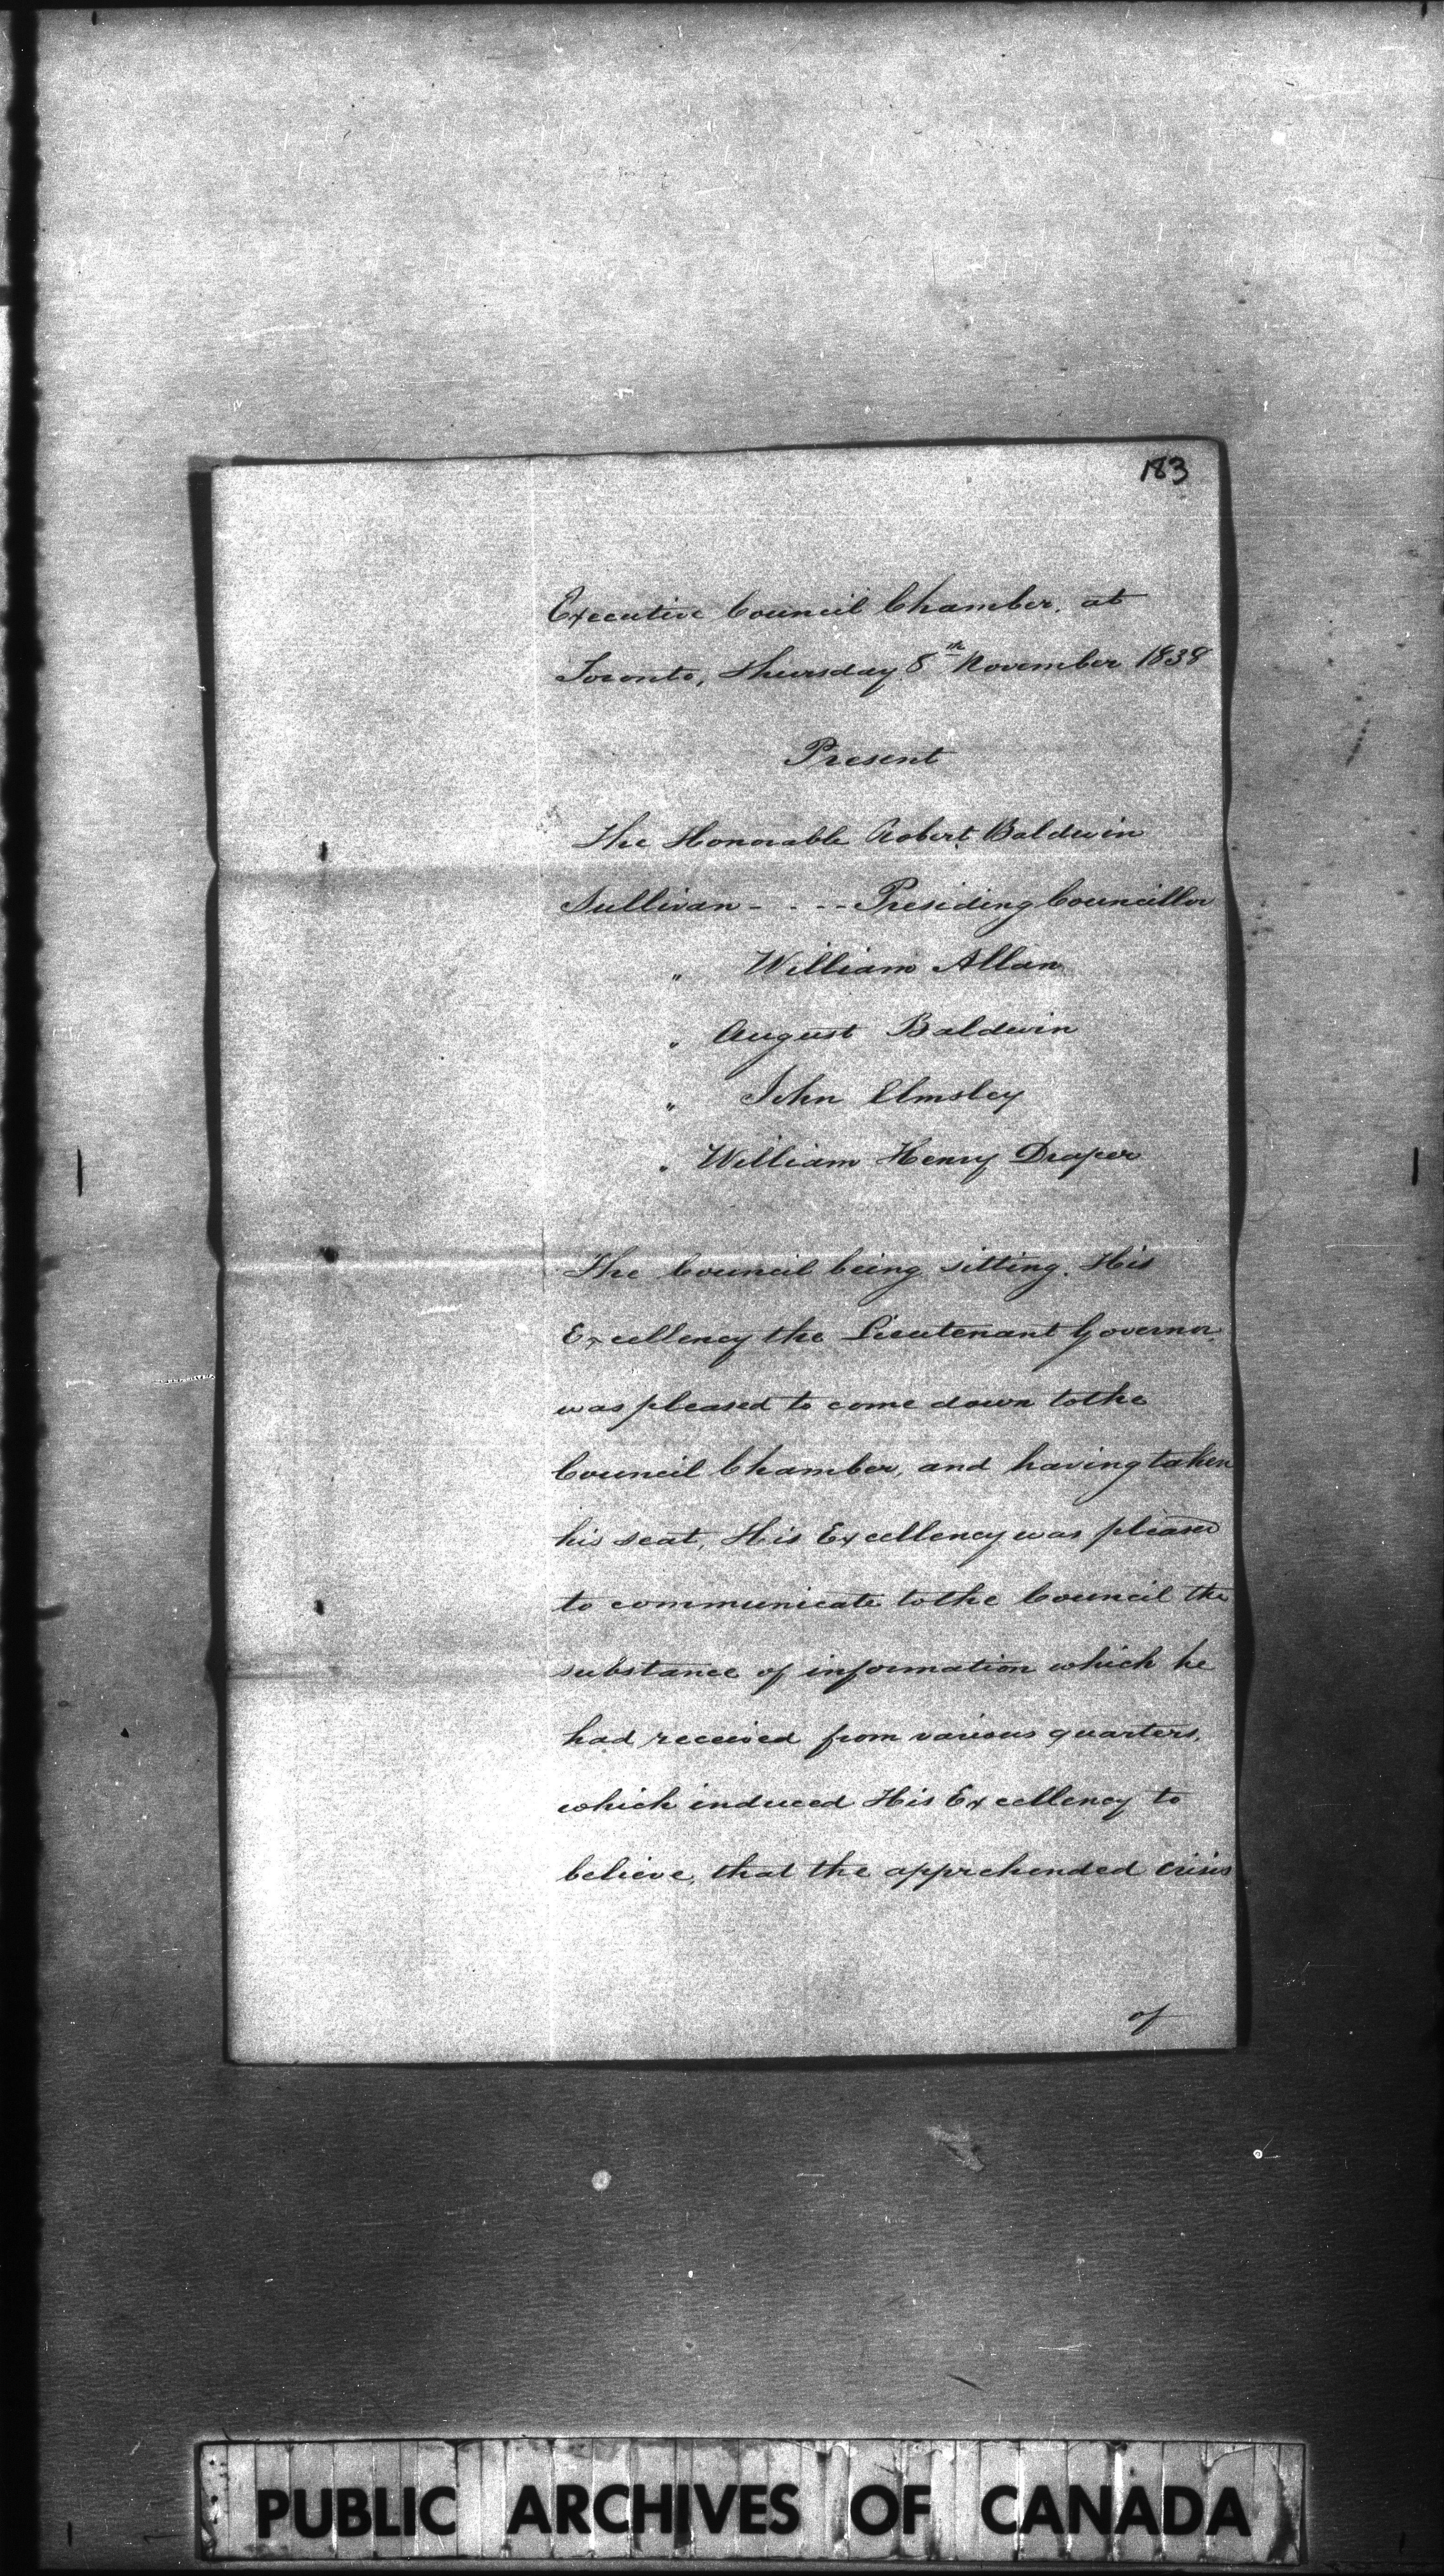 183
Executive Council Chamber, at
Toronto, Thursday 8th November 1838
Present
The Honorable Robert Baldwin
Sullivan - - - - Presiding Councillor
" William Allan
" August Baldwin
" John Elmsley
" William Henry Draper
The Council being sitting. His
Excellency the Lieutenant Governor
was pleased to come down to the
Council Chamber, and having taken
his seat, His Excellency was pleased
to communicate to the Council the
substance of information which he
had received from various quarters,
which induced His Excellency to
believe, that the apprehended crisis
of
PUBLIC ARCHIVES OF CANADA